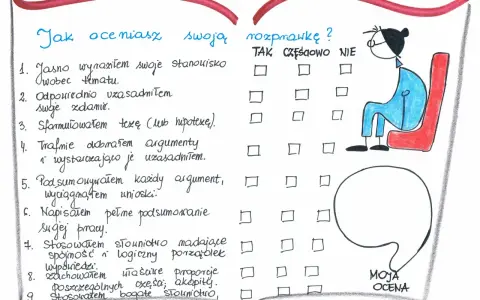 Jak oceniasz swoją rozprawkę?
TAK CZĘŚCIOWO NIE
1. Jasno wyraziłem swoje stanowisko
wobec tematu.
2. Odpowiednio uzasadniłem
swoje zdanie.
3. Sformułowałem tezę (lub hipotezę).
4. Trafnie dobrałem argumenty
i wystarczająco je uzasadniłem.
5. Podsumowywałem każdy argument,
wyciągnąłem wnioski.
6. Napisałem pełne podsumowanie
swojej pracy.
7. Stosowałem słownictwo nadające
spójność i logiczny porządek
wypowiedzi.
8. Zachowałem właściwe proporcje
poszczególnych części, akapity.
9. Stosowałem bogate słownictwo,
MOJA
OCENA